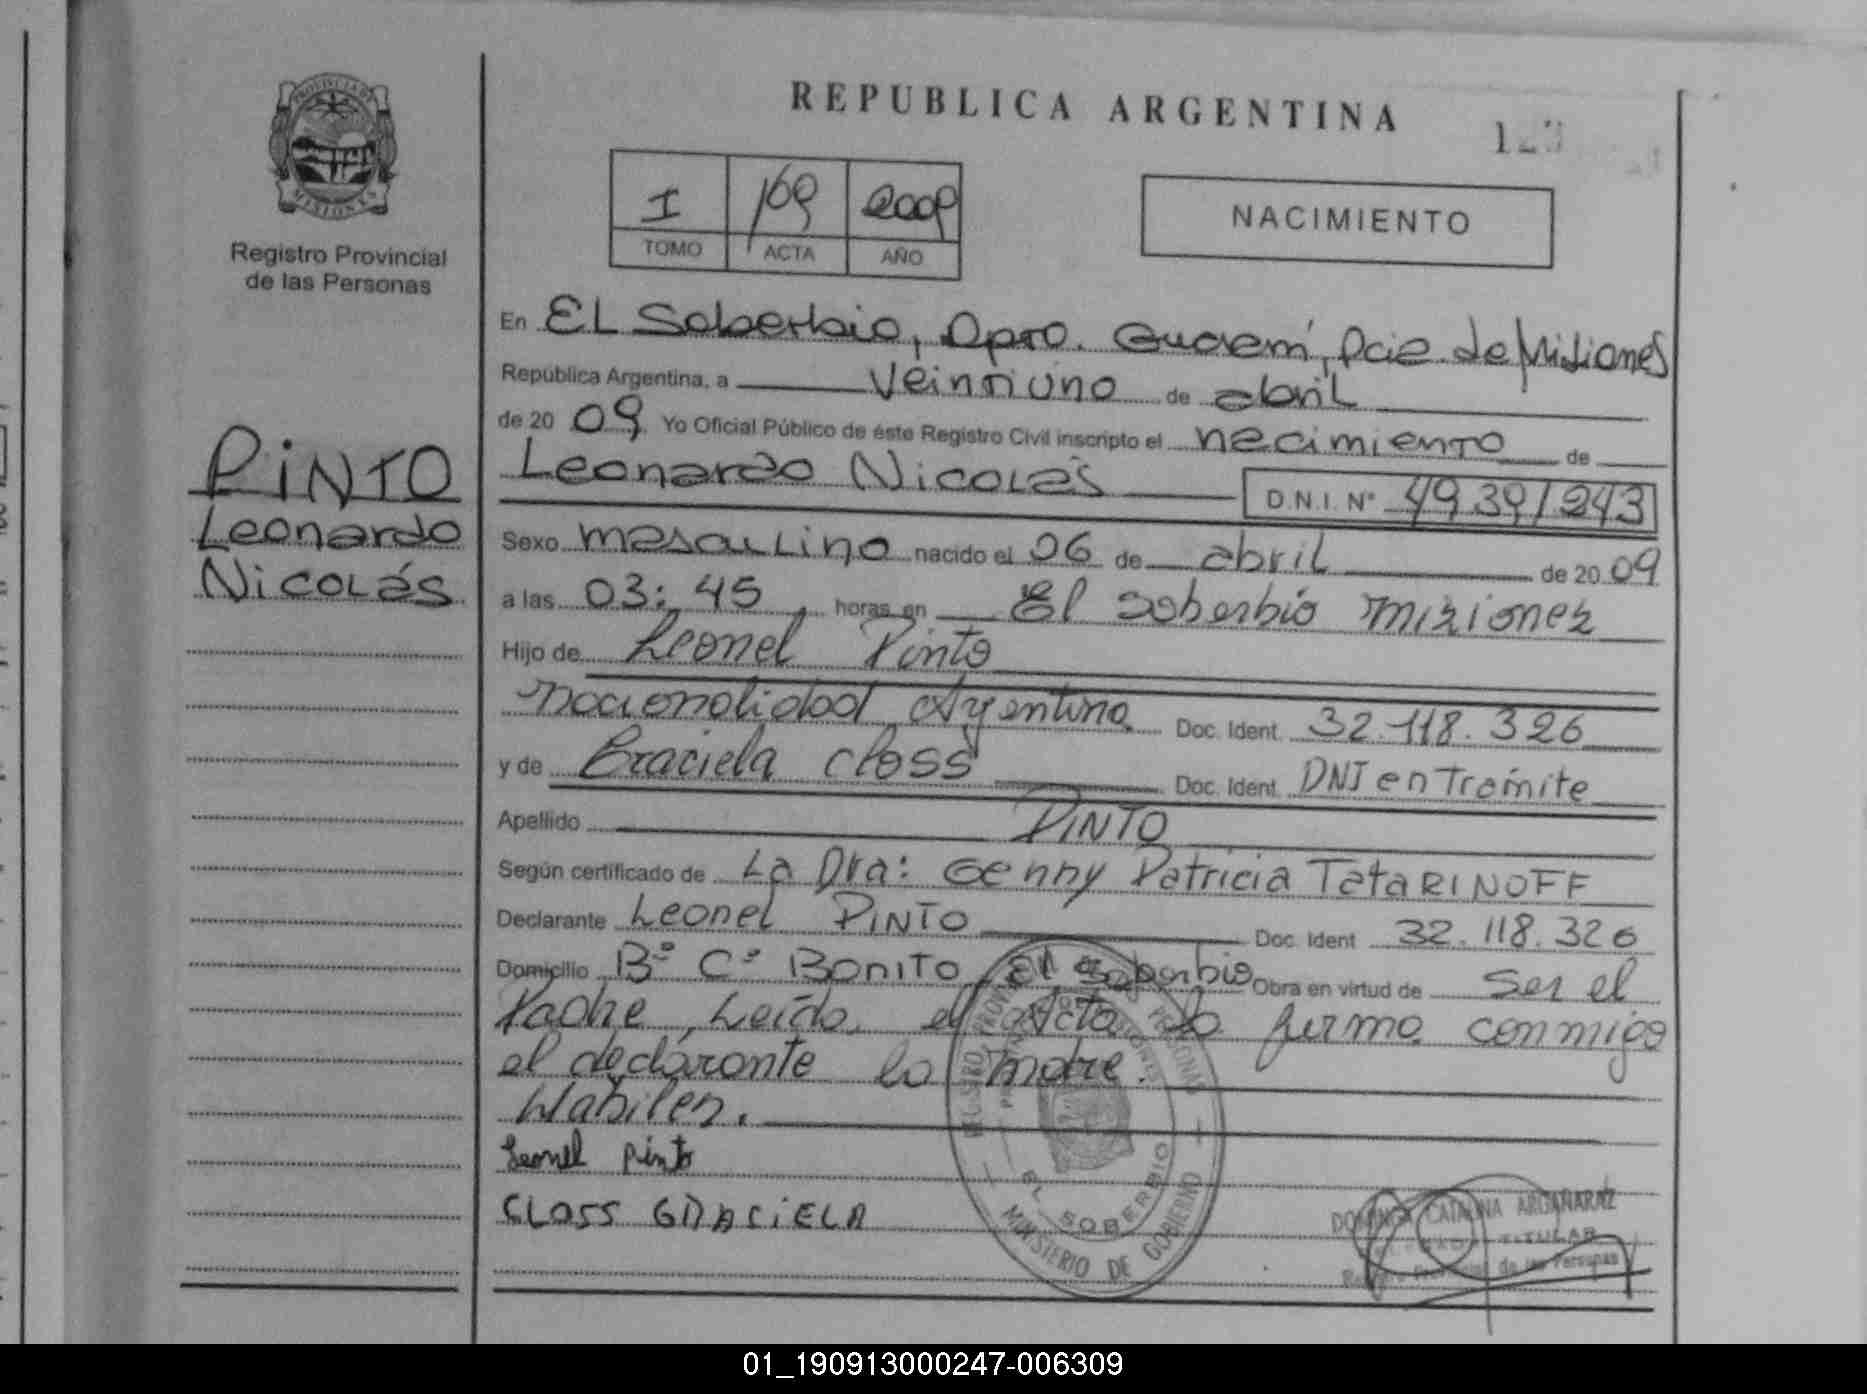 PROVINCIA DE
MISIONES
Registro Provincial
de las Personas
PINTO
Leonardo
Nicolás
REPUBLICA ARGENTINA
I 169 2009
TOMO ACTA AÑO
NACIMIENTO
En EL Soberbio, Dpto. Guaraní, Pcia de Misiones
República Argentina, a Veintiuno de abril
de 2009 Yo Oficial Público de éste Registro Civil inscripto el nacimiento de
Leonardo Nicolás D.N.I. Nº 49.391243
Sexo masculino nacido el 06 de abril de 2009
a las 03:45 horas en El Soberbio Misiones
Hijo de Leonel Pinto
nacionalidad Argentina Doc. Ident. 32.118.326
y de Graciela Closs Doc. Ident. DNI en Tramite
Apellido PINTO
Según certificado de La Dra: Genny Patricia TataRINOFF
Declarante Leonel PINTO Doc. Ident 32.118.326
Domicilio Bº Cº Bonito, El Soberbio Obra en virtud de Ser el
Padre, Leída el Acta la firma conmigo
el declarante la madre.
Leonel Pinto
CLOSS GRACIELA
EL SOBERBIO
MINISTERIO DE GOBIERNO
DOMINGA CATALINA ARGAÑARAZ
TITULAR
Registro Provincial de las Personas
01_190913000247-006309